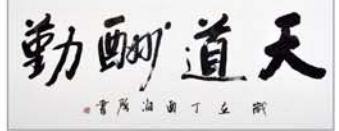 天道酬勤
歲在丁酉書